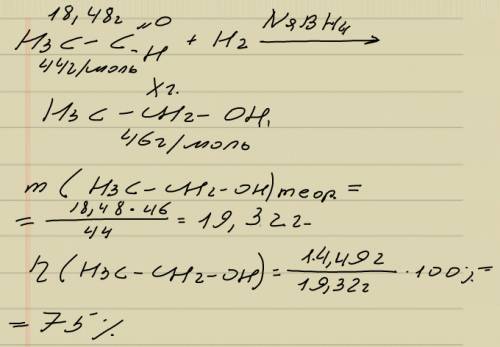 18,48г
H₃C-C =O -H + H₂ NaBH₄ →
44г/моль
Xг.
H₃C-CH₂-OH,
46г/моль
m(H₃C-CH₂-OH)теор. =
= 18,48·46 / 44 = 19,32г
η(H₃C-CH₂-OH) = 14,49г / 19,32г · 100% =
= 75%